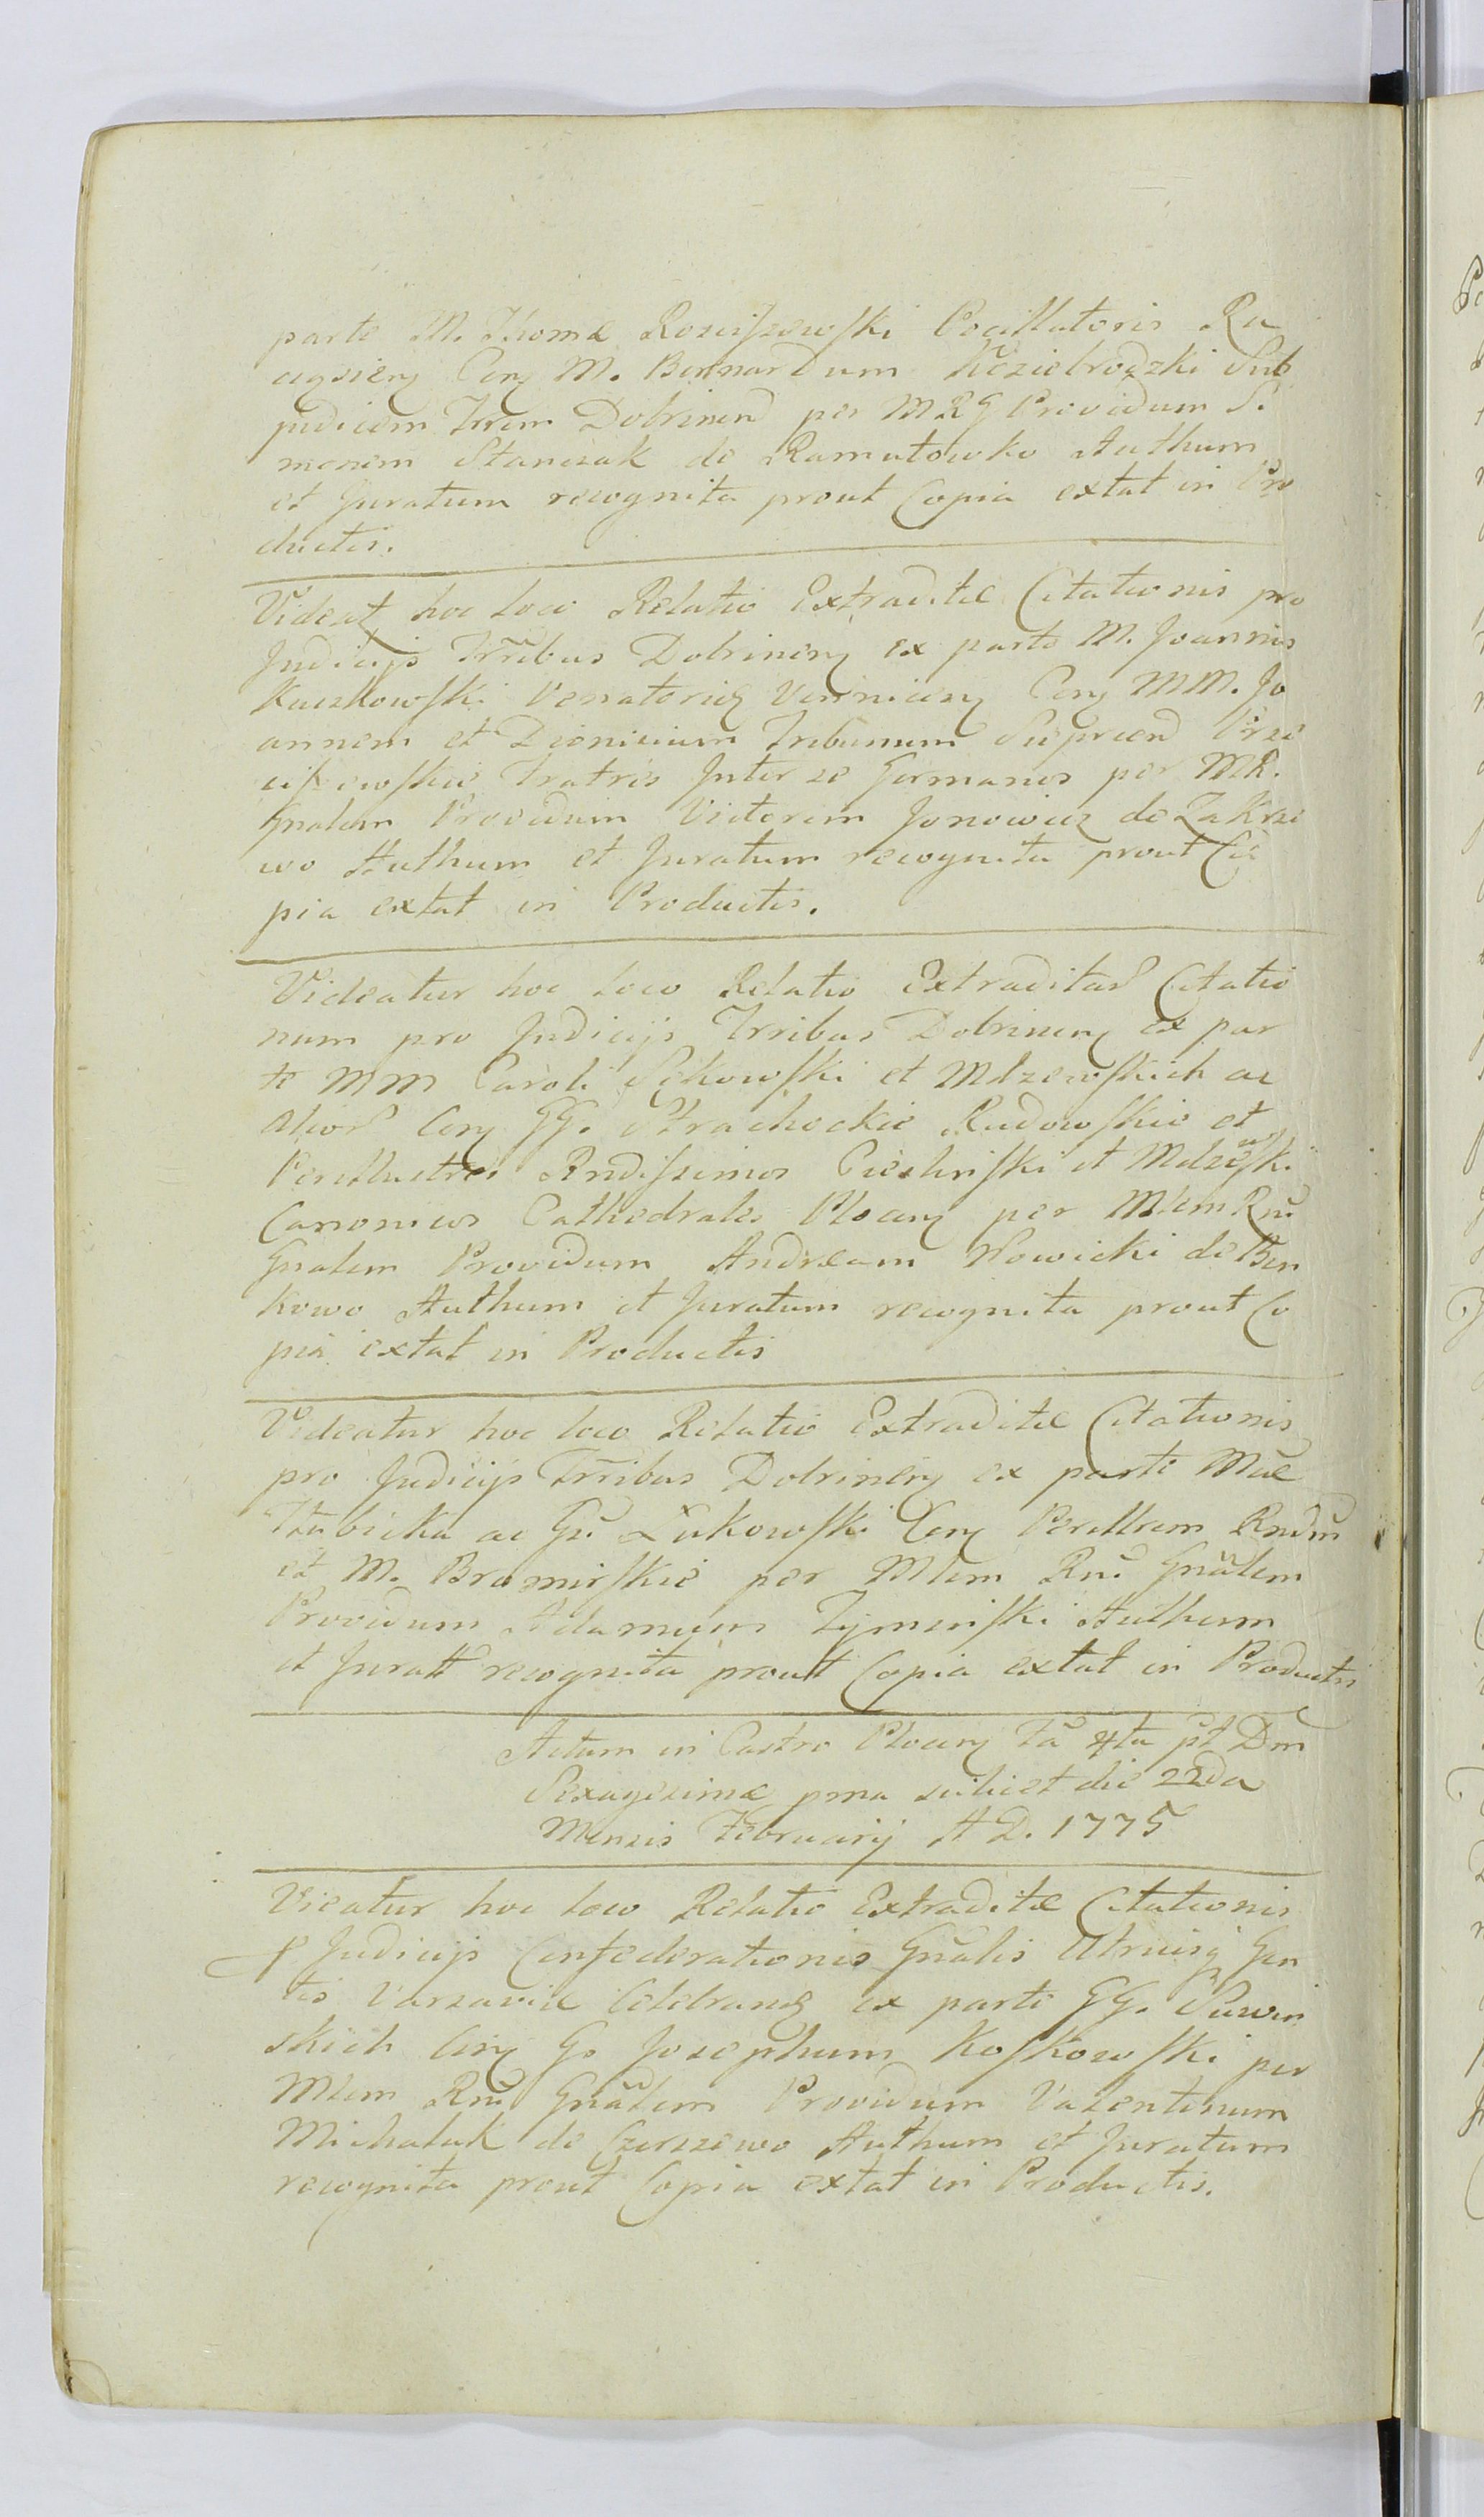 parte M. Thomæ Rosciszewſki Pocillatoris Ra
ciąsień Con M. Bernardum Koziebrodzki Sub
judicem Trrem Dobrinen per MRG Providum Si
monem Stanczak de Ramutowko Authum
et Juratum recognita prout Copia extat in Pro
ductis.
Videat hoc loco Relatio Extraditæ Citationis pro
Judicijs Trribus Dobrinen ex parte M. Joannis
Kuczkowſki Venatoris Con MM. Jo
annem et Dionisium Tribunum
Fratres Inter se Germanos per MR.
Gnalem Providum Victorem Jonowicz de Zakrze
wo Authum et Juratum recognita prout Co
pia extat in Productis.
Videatur hoc loco Relatio Extraditar Citatio
num pro Judicijs Trribus Dobrinen ex par
te MM Caroli Sękowſki et Mdzewſkich ac
alior Con GG. Strachockie Rudowſkie et
Perillustres Rndiſsimos Cieslinſki et Mdzewſki
Canonicos Cathedrales Plocen per Mlem Rni
Gnalem Providum Andream Nowicki de Bon
kowo Authum et Juratum recognita prout Co
pia extat in Productis
Videatur hoc loco Relatio Extraditæ Citationis
pro Judicijs Trribus Dobrinen ex parte Mæ
ac Gi Łukowſki Con Perillrem Rndm
et M. Bromirſkie per Mlem Rni Gnalem
Providum Adamum Zyminſki Authum
et Juratt recognita prout Copia extat in Productis
Actum in Castro Plocen fa 4ta pt Dm
Sexagesimæ pma scilicet die 22da
Mensis February A D. 1775
Vieatur hoc loco Relatio Extraditæ Citationis
p Judicijs Confederationis Gnalis Utriusq Gen
tis Varsaviæ Celebrand ex parte GG.
skich Con G. Josephum Koſkowſki per
Mlem Rni Gnalem Providum Valentinum
Michalak de Czerszewo Authum et Juratum
recognita prout Copia extat in Productis.